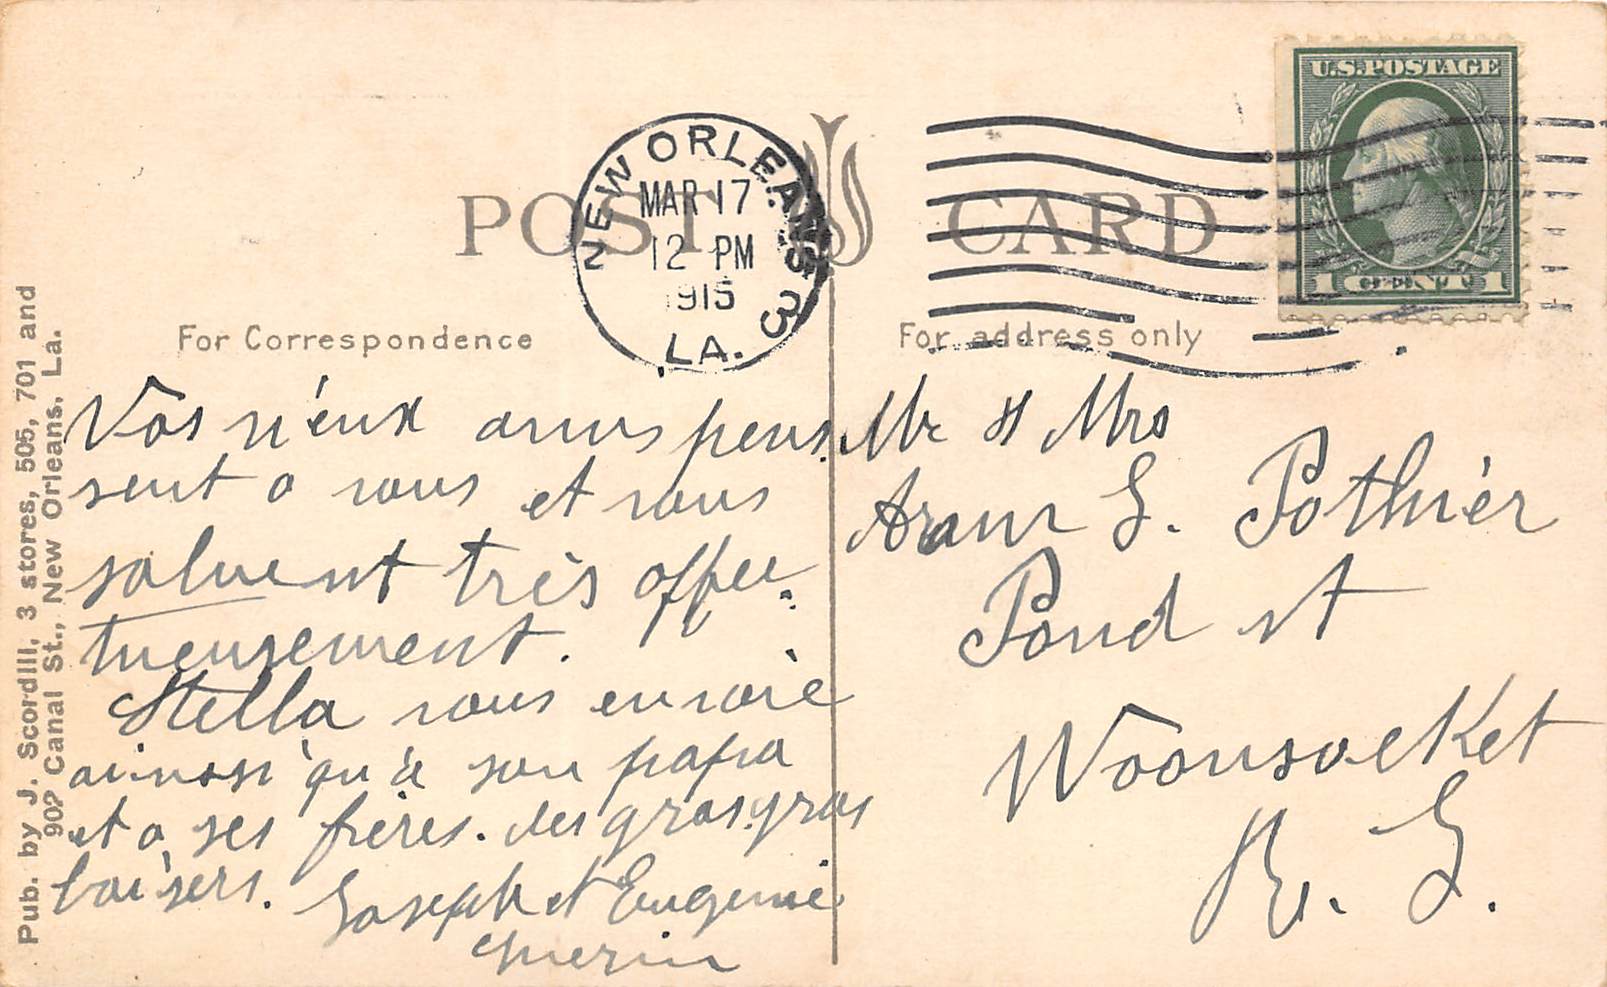 U.S. POSTAGE
1 CENT 1
NEW ORLEANS 3
MAR 17
12 PM
1915
LA.
POST CARD
For Correspondence
For address only
Vos vieux amis pen-
sent a vous et vous
saluent très affec-
tueusement.
Stella vous envoie
ainsi qu'à son papa
et a ses frères. des gros gros
baisers. Joseph et Eugenie
Guerin
Mr & Mrs
Aram J. Pothier
Pond st
Woonsocket
R. I.
Pub. by J. Scordill, 3 stores, 505, 701 and
902 Canal St., New Orleans, La.